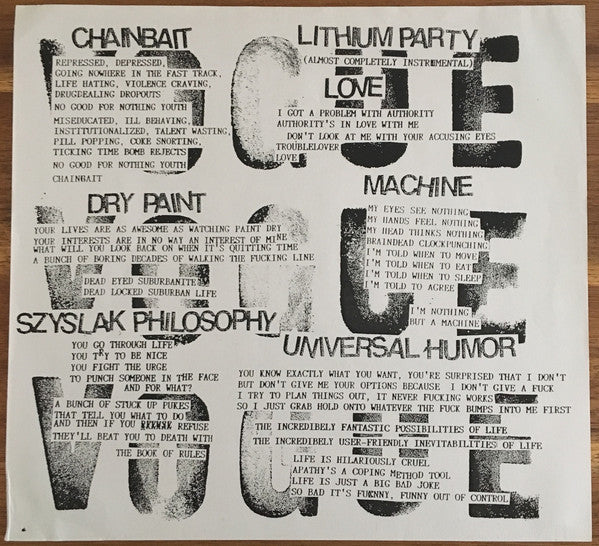 VOGUE
CHAINBAIT
REPRESSED, DEPRESSED,
GOING NOWHERE IN THE FAST TRACK,
LIFE HATING, VIOLENCE CRAVING,
DRUGDEALING DROPOUTS
NO GOOD FOR NOTHING YOUTH
MISEDUCATED, ILL BEHAVING,
INSTITUTIONALIZED, TALENT WASTING,
PILL POPPING, COKE SNORTING,
TICKING TIME BOMB REJECTS
NO GOOD FOR NOTHING YOUTH
CHAINBAIT
LITHIUM PARTY
(ALMOST COMPLETELY INSTRUMENTAL)
LOVE
I GOT A PROBLEM WITH AUTHORITY
AUTHORITY'S IN LOVE WITH ME
DON'T LOOK AT ME WITH YOUR ACCUSING EYES
TROUBLELOVER
LOVE
VOGUE
DRY PAINT
YOUR LIVES ARE AS AWESOME AS WATCHING PAINT DRY
YOUR INTERESTS ARE IN NO WAY AN INTEREST OF MINE
WHAT WILL YOU LOOK BACK ON WHEN IT'S QUITTING TIME
A BUNCH OF BORING DECADES OF WALKING THE FUCKING LINE
DEAD EYED SUBURBANITE
DEAD LOCKED SUBURBAN LIFE
MACHINE
MY EYES SEE NOTHING
MY HANDS FEEL NOTHING
MY HEAD THINKS NOTHING
BRAINDEAD CLOCKPUNCHING
I'M TOLD WHEN TO MOVE
I'M TOLD WHEN TO EAT
I'M TOLD WHEN TO SLEEP
I'M TOLD TO AGREE
I'M NOTHING
BUT A MACHINE
VOGUE
SZYSLAK PHILOSOPHY
YOU GO THROUGH LIFE
YOU TRY TO BE NICE
YOU FIGHT THE URGE
TO PUNCH SOMEONE IN THE FACE
AND FOR WHAT?
A BUNCH OF STUCK UP PUKES
THAT TELL YOU WHAT TO DO
AND THEN IF YOU REFUSE
THEY'LL BEAT YOU TO DEATH WITH
THE BOOK OF RULES
UNIVERSAL HUMOR
YOU KNOW EXACTLY WHAT YOU WANT, YOU'RE SURPRISED THAT I DON'T
BUT DON'T GIVE ME YOUR OPTIONS BECAUSE I DON'T GIVE A FUCK
I TRY TO PLAN THINGS OUT, IT NEVER FUCKING WORKS
SO I JUST GRAB HOLD ONTO WHATEVER THE FUCK BUMPS INTO ME FIRST
THE INCREDIBELY FANTASTIC POSSIBILITIES OF LIFE
THE INCREDIBELY USER-FRIENDLY INEVITABILITIES OF LIFE
LIFE IS HILARIOUSLY CRUEL
APATHY'S A COPING METHOD TOOL
LIFE IS JUST A BIG BAD JOKE
SO BAD IT'S FUKNNY, FUNNY OUT OF CONTROL